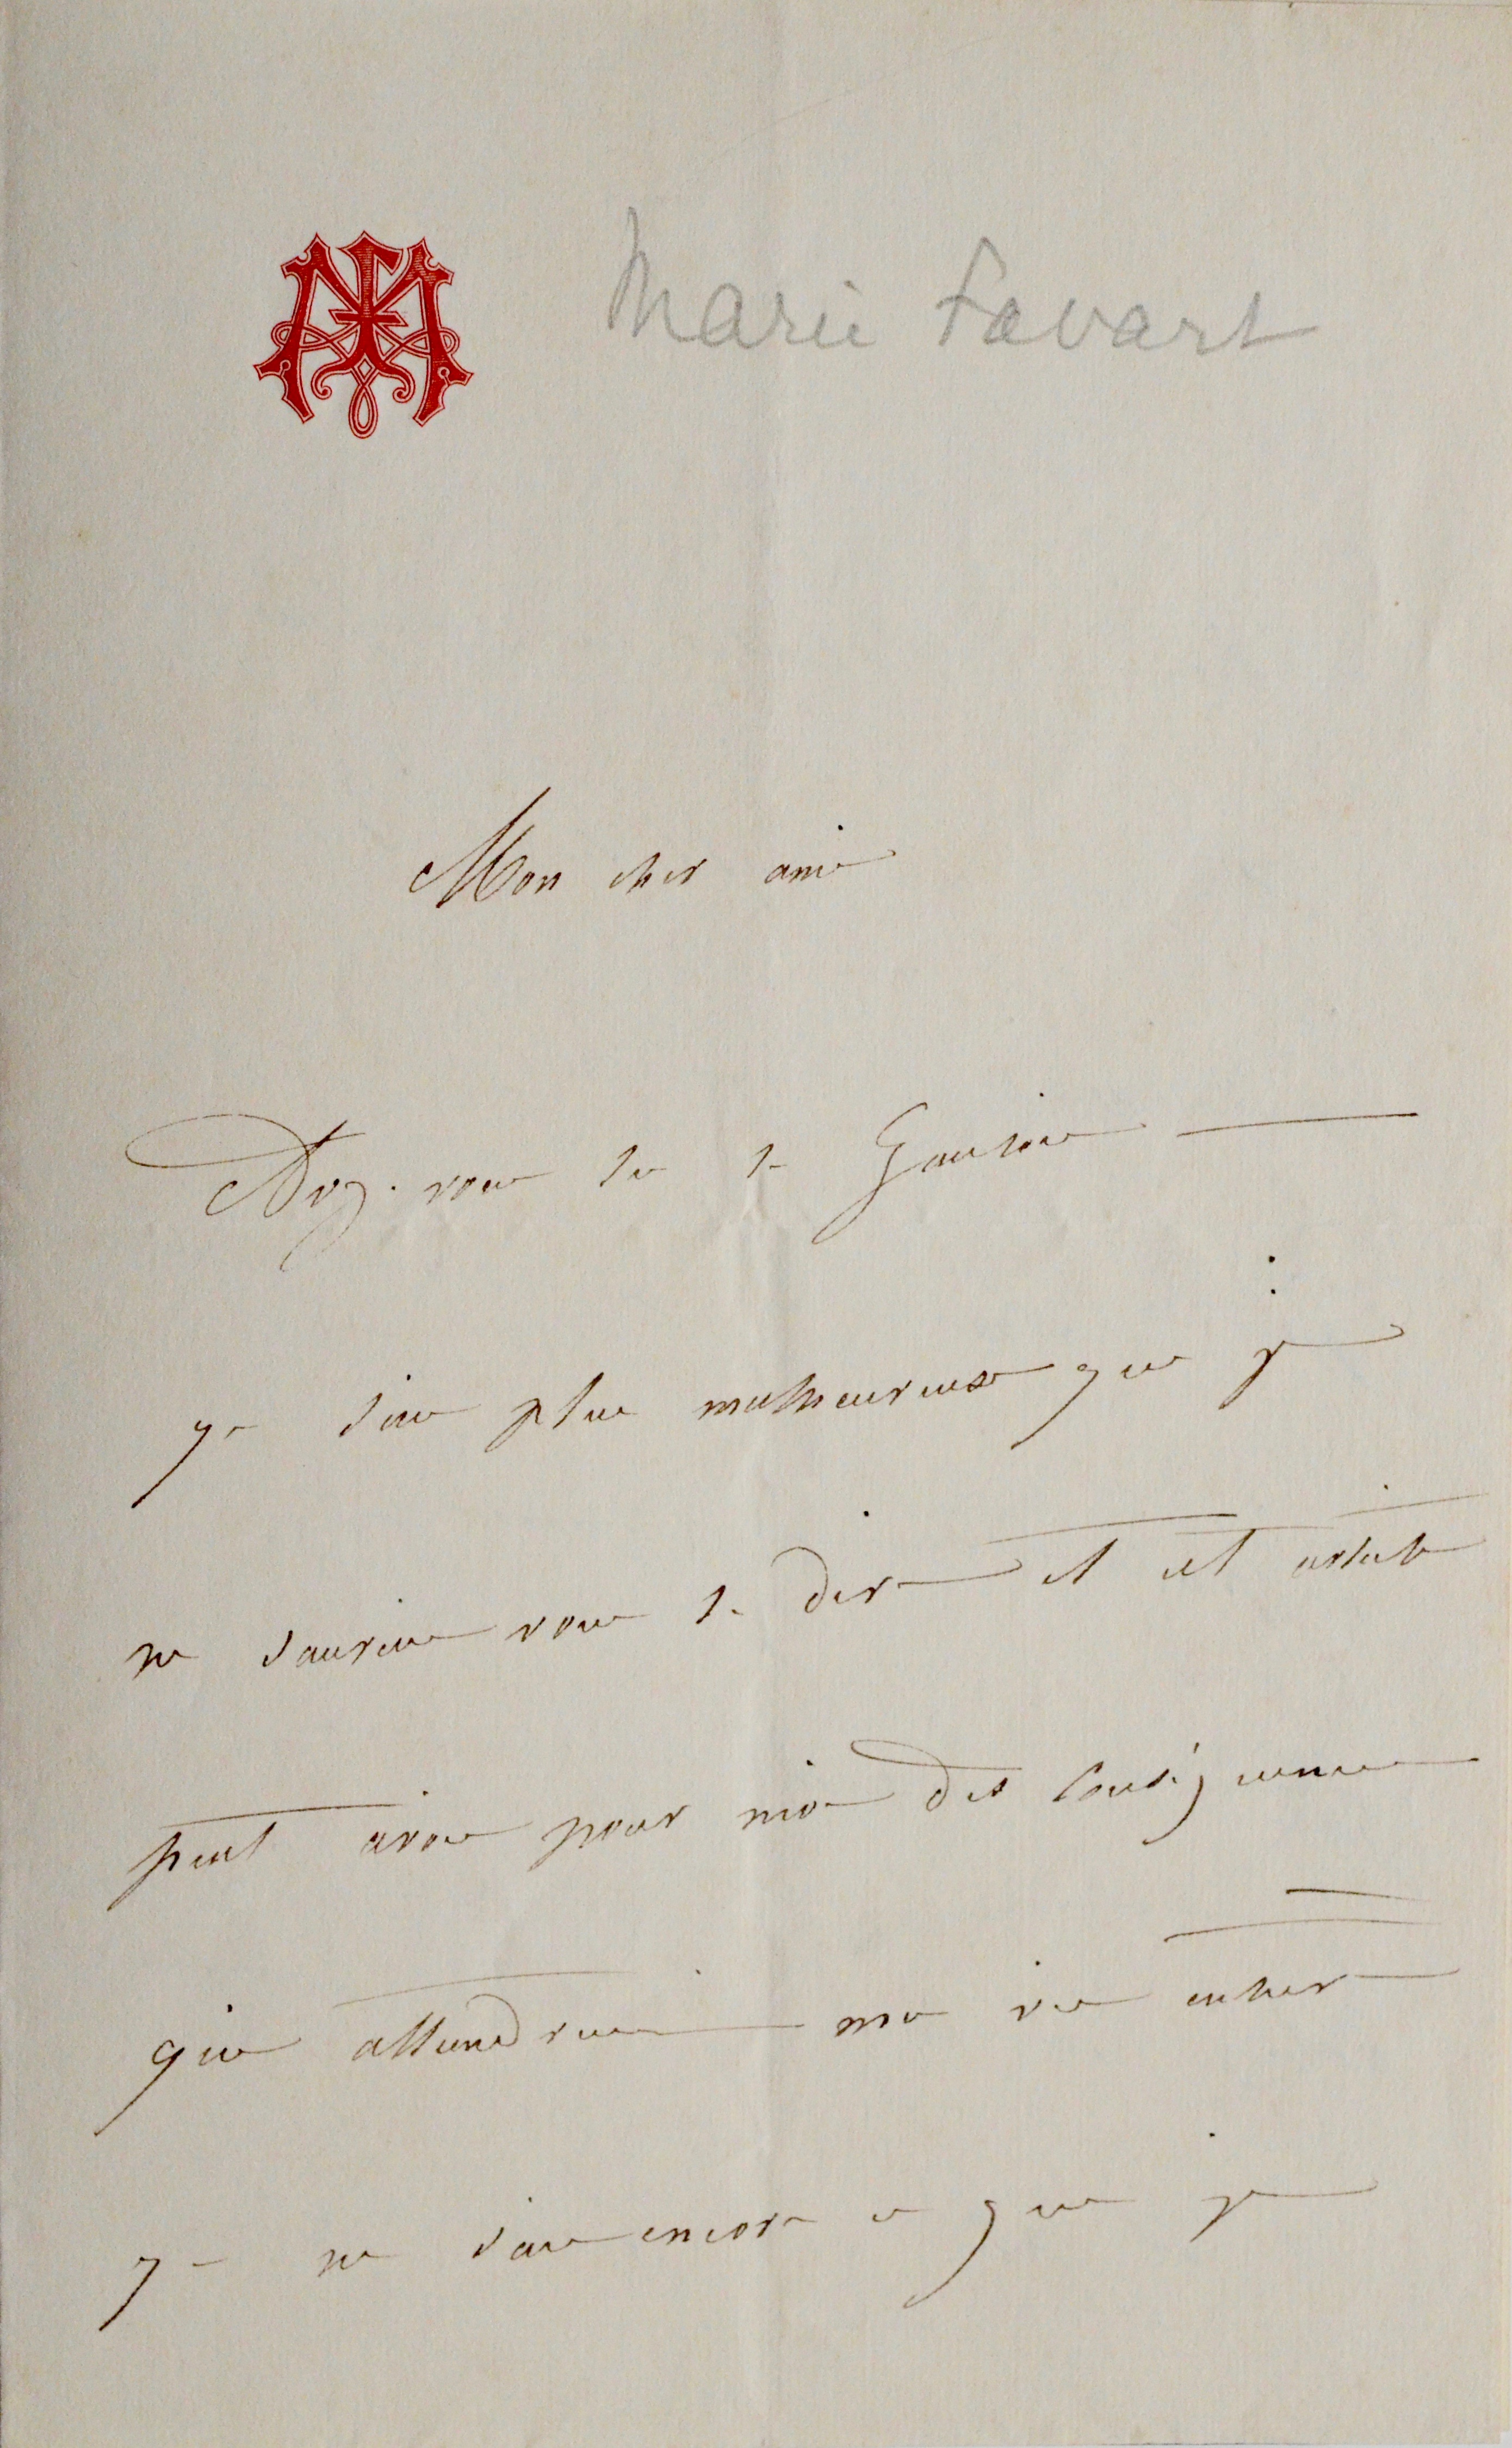 Marie Favart
Mon cher ami
Avez-vous lu le Gaulois
je suis plus malheureuse que je
ne saurais vous le dire et cet article
peut avoir pour moi des conséquences
qui attendraient ma vie entière
je ne sais encore ce que je